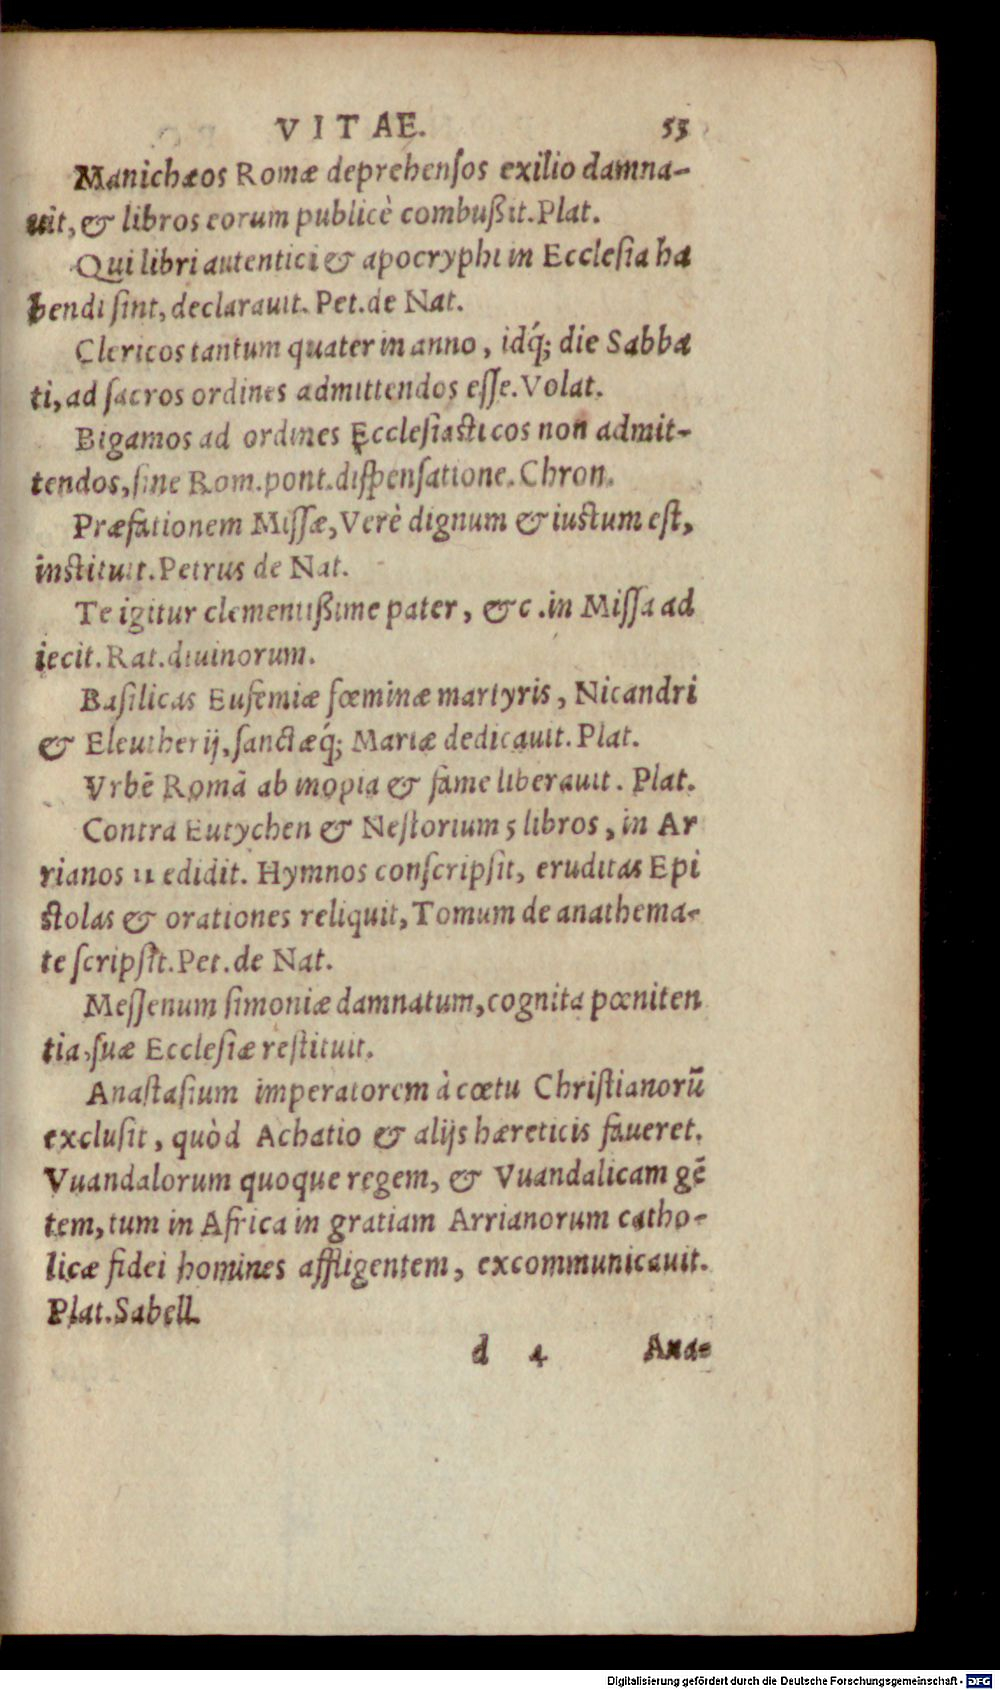 VITAE. 53
Manichæos Romæ deprehensos exilio damna-
uit, & libros eorum publicè combußit. Plat.
Qui libri autentici & apocryphi in Ecclesia ha
bendi sint, declarauit. Pet. de Nat.
Clericos tantum quater in anno, idq́; die Sabba
ti, ad sacros ordines admittendos esse. Volat.
Bigamos ad ordines Ecclesiasticos non admit-
tendos, sine Rom. pont. dispensatione. Chron.
Præfationem Missæ, Verè dignum & iustum est,
instituit. Petrus de Nat.
Te igitur clementißime pater, &c. in Missa ad
iecit. Rat. diuinorum.
Basilicas Eufemiæ fœminæ martyris, Nicandri
& Eleutherij, sanctæq́; Mariæ dedicauit. Plat.
Vrbē Romā ab inopia & fame liberauit. Plat.
Contra Eutychen & Nestorium 5 libros, in Ar
rianos 11 edidit. Hymnos conscripsit, eruditas Epi
stolas & orationes reliquit, Tomum de anathema-
te scripsit. Pet. de Nat.
Messenum simoniæ damnatum, cognita pœniten
tia, suæ Ecclesiæ restituit.
Anastasium imperatorem à cœtu Christianorū
exclusit, quòd Achatio & alijs hæreticis faueret.
Vuandalorum quoque regem, & Vuandalicam gē
tem, tum in Africa in gratiam Arrianorum catho-
licæ fidei homines affligentem, excommunicauit.
Plat. Sabell.
d 4 Ana-
Digitalisierung gefördert durch die Deutsche Forschungsgemeinschaft - DFG